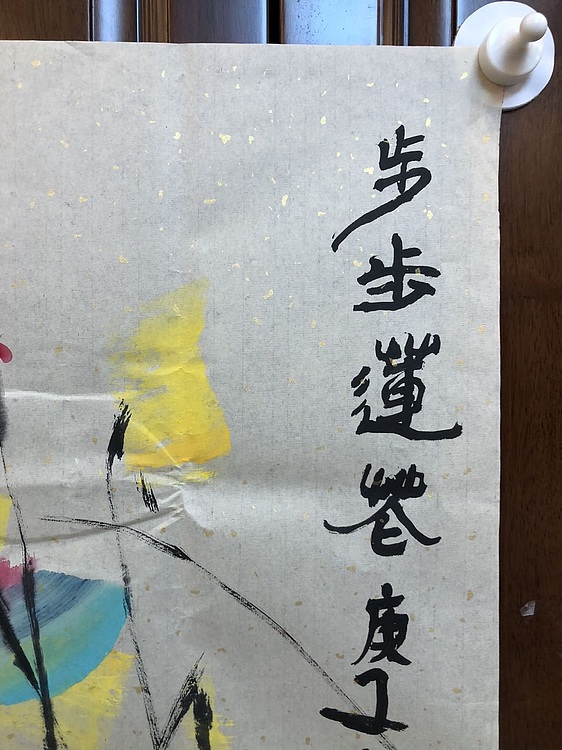 步步蓮花庚子